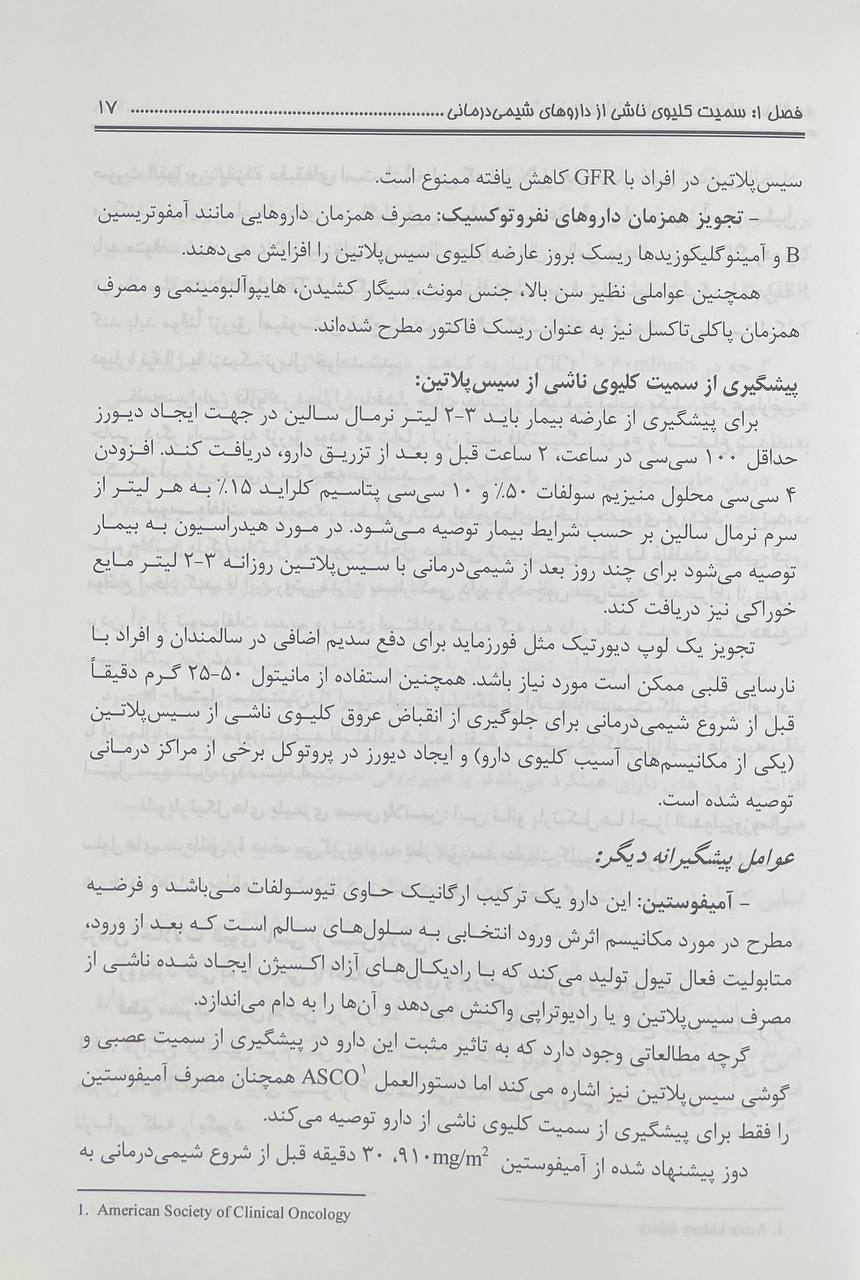 فصل ۱: سمیت کلیوی ناشی از داروهای شیمی‌درمانی ........................................................................ ۱۷
سیس‌پلاتین در افراد با GFR کاهش یافته ممنوع است.
– تجویز همزمان داروهای نفروتوکسیک: مصرف همزمان داروهایی مانند آمفوتریسین
B و آمینوگلیکوزیدها ریسک بروز عارضه کلیوی سیس‌پلاتین را افزایش می‌دهند.
همچنین عواملی نظیر سن بالا، جنس مونث، سیگار کشیدن، هایپوآلبومینمی و مصرف
همزمان پاکلی‌تاکسل نیز به عنوان ریسک فاکتور مطرح شده‌اند.
پیشگیری از سمیت کلیوی ناشی از سیس‌پلاتین:
برای پیشگیری از عارضه بیمار باید ۳-۲ لیتر نرمال سالین در جهت ایجاد دیورز
حداقل ۱۰۰ سی‌سی در ساعت، ۲ ساعت قبل و بعد از تزریق دارو، دریافت کند. افزودن
۴ سی‌سی محلول منیزیم سولفات ۵۰٪ و ۱۰ سی‌سی پتاسیم کلراید ۱۵٪ به هر لیتر از
سرم نرمال سالین بر حسب شرایط بیمار توصیه می‌شود. در مورد هیدراسیون به بیمار
توصیه می‌شود برای چند روز بعد از شیمی‌درمانی با سیس‌پلاتین روزانه ۳-۲ لیتر مایع
خوراکی نیز دریافت کند.
تجویز یک لوپ دیورتیک مثل فورزماید برای دفع سدیم اضافی در سالمندان و افراد با
نارسایی قلبی ممکن است مورد نیاز باشد. همچنین استفاده از مانیتول ۵۰-۲۵ گرم دقیقاً
قبل از شروع شیمی‌درمانی برای جلوگیری از انقباض عروق کلیوی ناشی از سیس‌پلاتین
(یکی از مکانیسم‌های آسیب کلیوی دارو) و ایجاد دیورز در پروتوکل برخی از مراکز درمانی
توصیه شده است.
عوامل پیشگیرانه دیگر:
– آمیفوستین: این دارو یک ترکیب ارگانیک حاوی تیوسولفات می‌باشد و فرضیه
مطرح در مورد مکانیسم اثرش ورود انتخابی به سلول‌های سالم است که بعد از ورود،
متابولیت فعال تیول تولید می‌کند که با رادیکال‌های آزاد اکسیژن ایجاد شده ناشی از
مصرف سیس‌پلاتین و یا رادیوتراپی واکنش می‌دهد و آن‌ها را به دام می‌اندازد.
گرچه مطالعاتی وجود دارد که به تاثیر مثبت این دارو در پیشگیری از سمیت عصبی و
گوشی سیس‌پلاتین نیز اشاره می‌کند اما دستورالعمل ASCO¹ همچنان مصرف آمیفوستین
را فقط برای پیشگیری از سمیت کلیوی ناشی از دارو توصیه می‌کند.
دوز پیشنهاد شده از آمیفوستین ۹۱۰mg/m²، ۳۰ دقیقه قبل از شروع شیمی‌درمانی به
1. American Society of Clinical Oncology